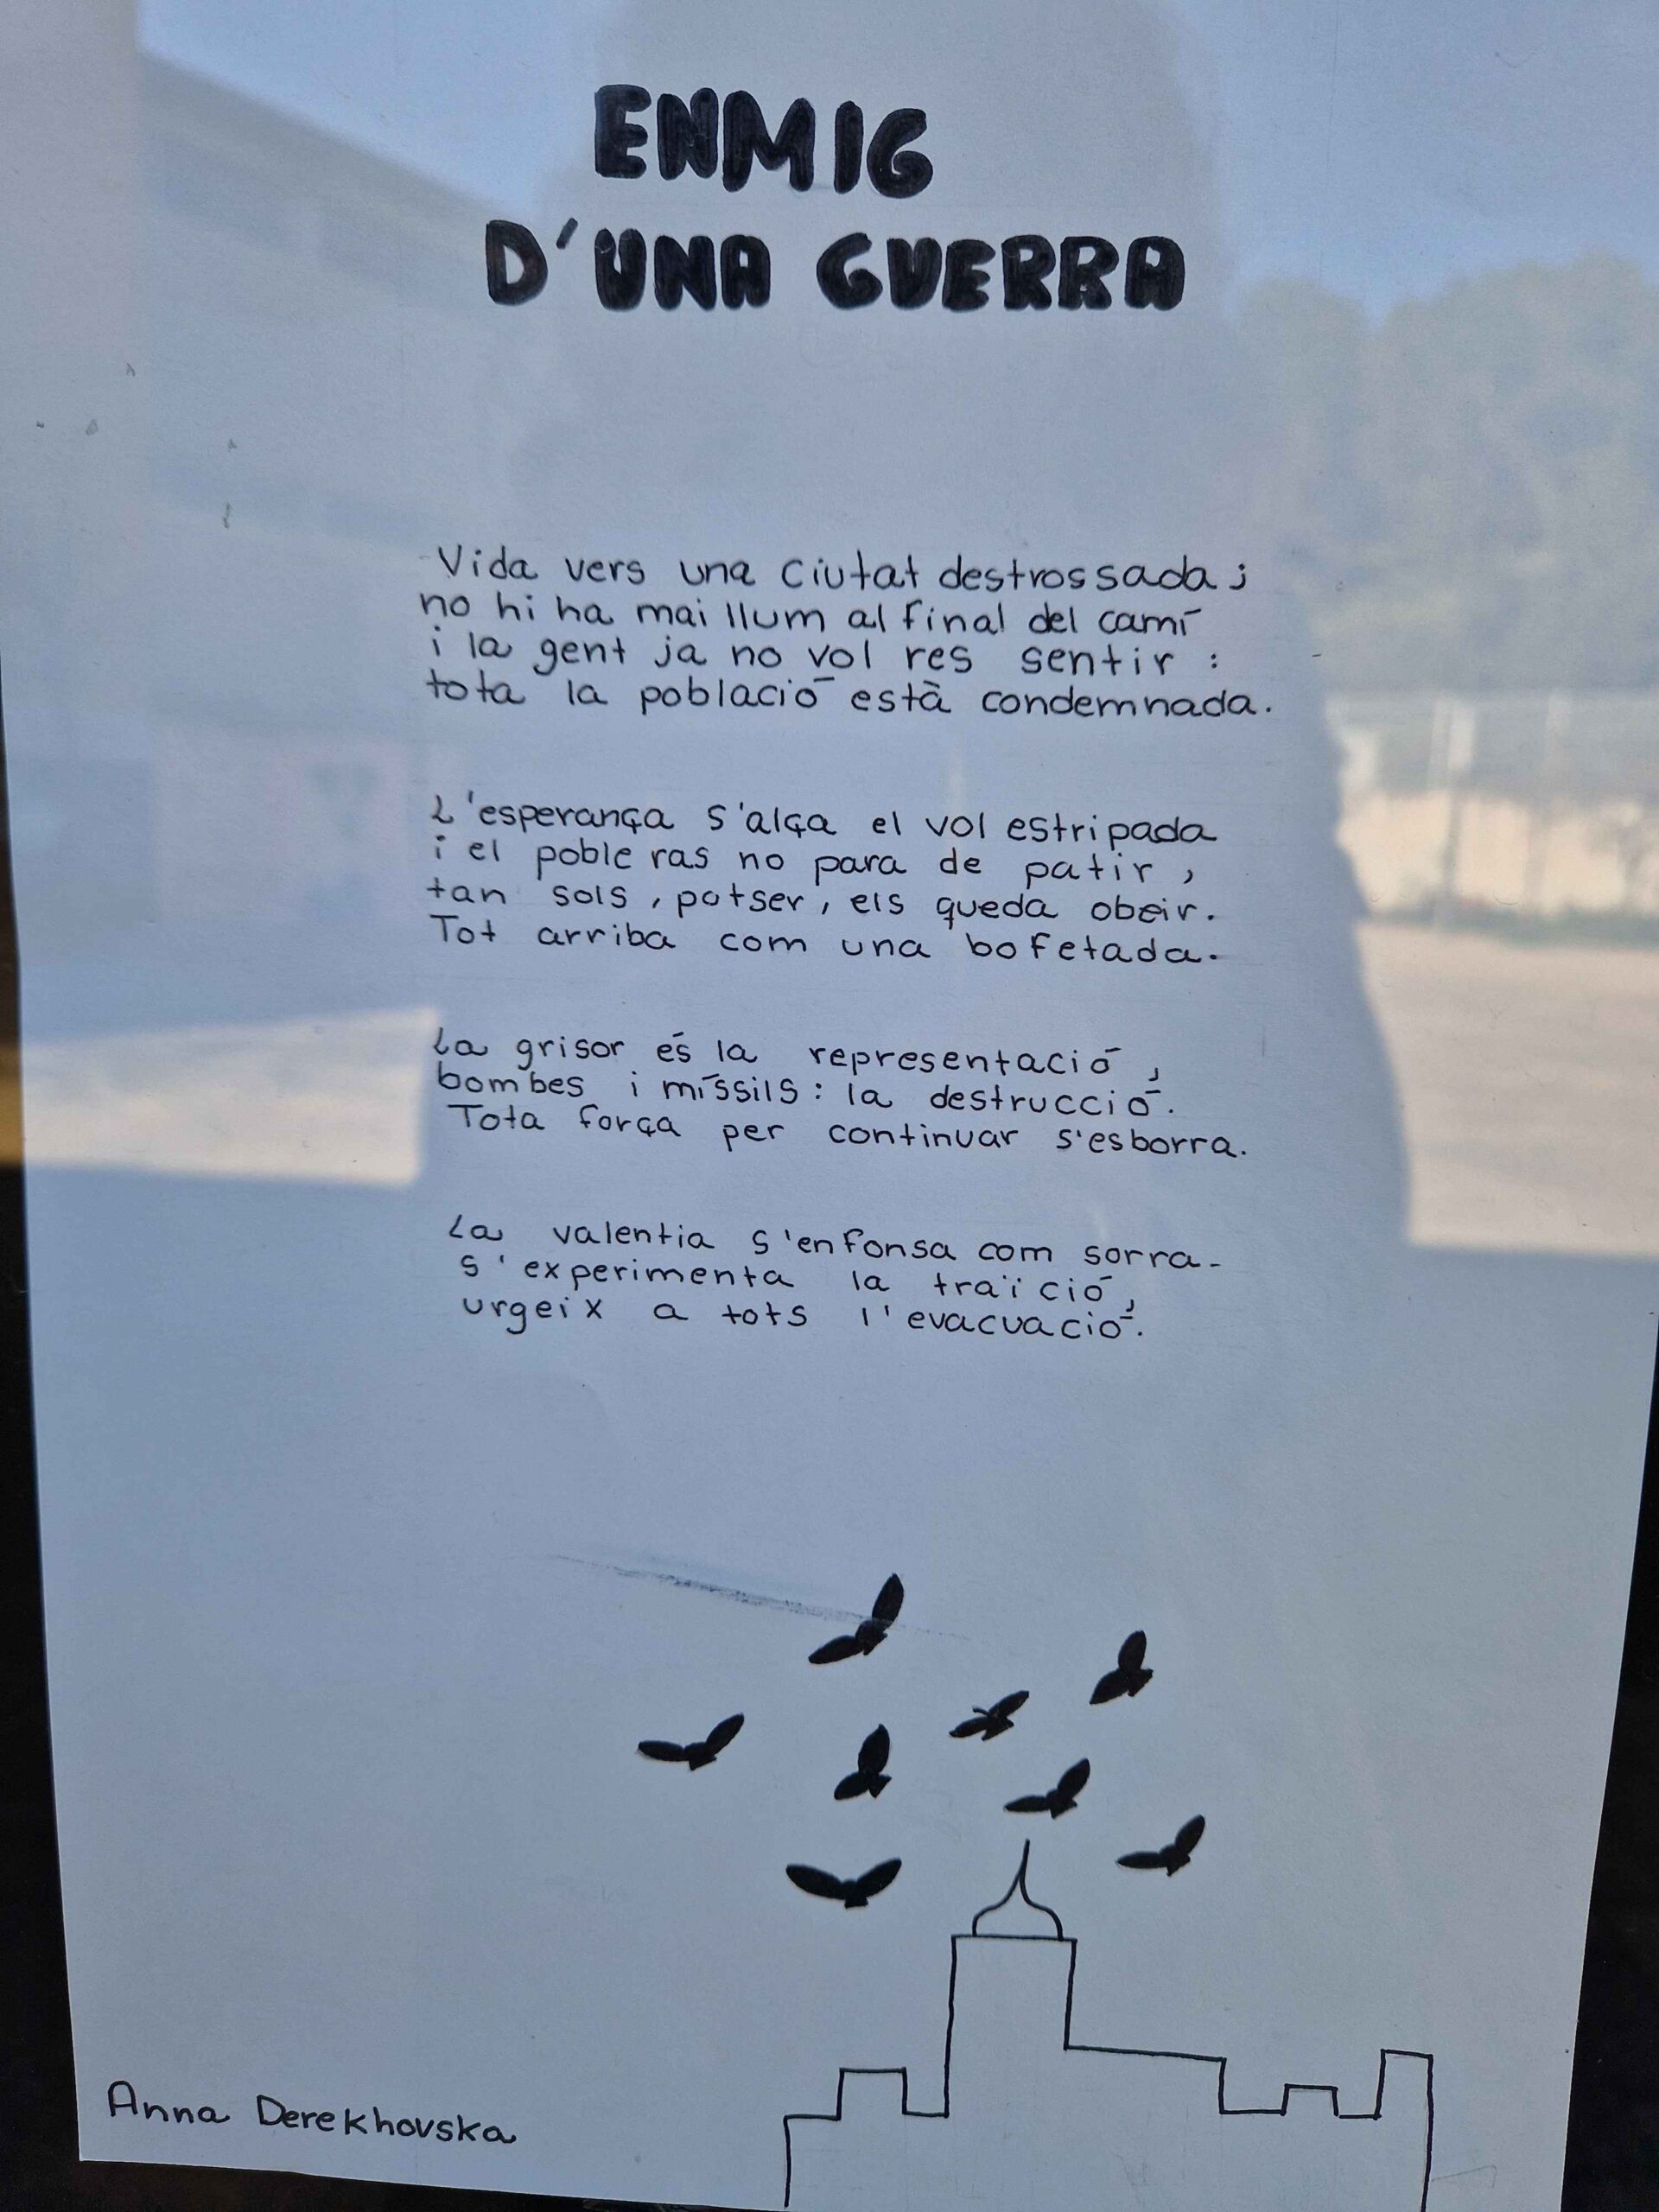 ENMIG
D'UNA GUERRA
Vida vers una ciutat destrossada;
no hi ha mai llum al final del camí
i la gent ja no vol res sentir:
tota la població està condemnada.
L'esperança s'alça el vol estripada
i el poble ras no para de patir,
tan sols, potser, els queda obeir.
Tot arriba com una bofetada.
La grisor és la representació,
bombes i míssils: la destrucció.
Tota força per continuar s'esborra.
La valentia s'enfonsa com sorra.
s'experimenta la traïció,
urgeix a tots l'evacuació.
Anna Derekhovska